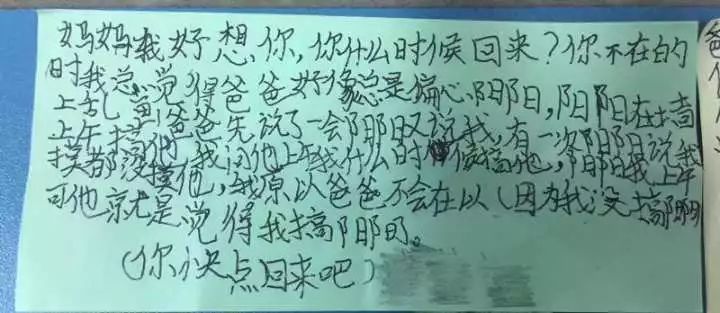 妈妈我好想你，你什么时候回来？你不在的
时我总觉得爸爸好像总是偏心阳阳，阳阳在墙
上乱画，爸爸先说了一会阳阳又说我，有一次阳阳说我
上午搞他，我问他上午我什么时候搞他，阳阳说我上午
摸都没摸他，我原以爸爸不会在以（因为我没搞阳阳）
可他就是觉得我搞阳阳的。
（你快点回来吧）